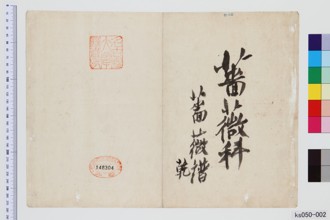 薔薇科
薔薇譜
乾
148304
ks050-002